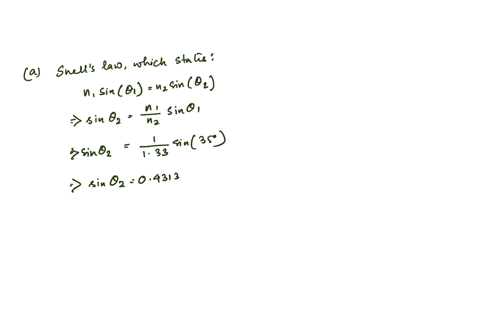 (a) Snell's law, which states:
n₁ sin(θ₁) = n₂ sin(θ₂)
⇒ sin θ₂ = n₁/n₂ sin θ₁
⇒ sin θ₂ = 1/1.33 sin(35°)
⇒ sin θ₂ = 0.4313